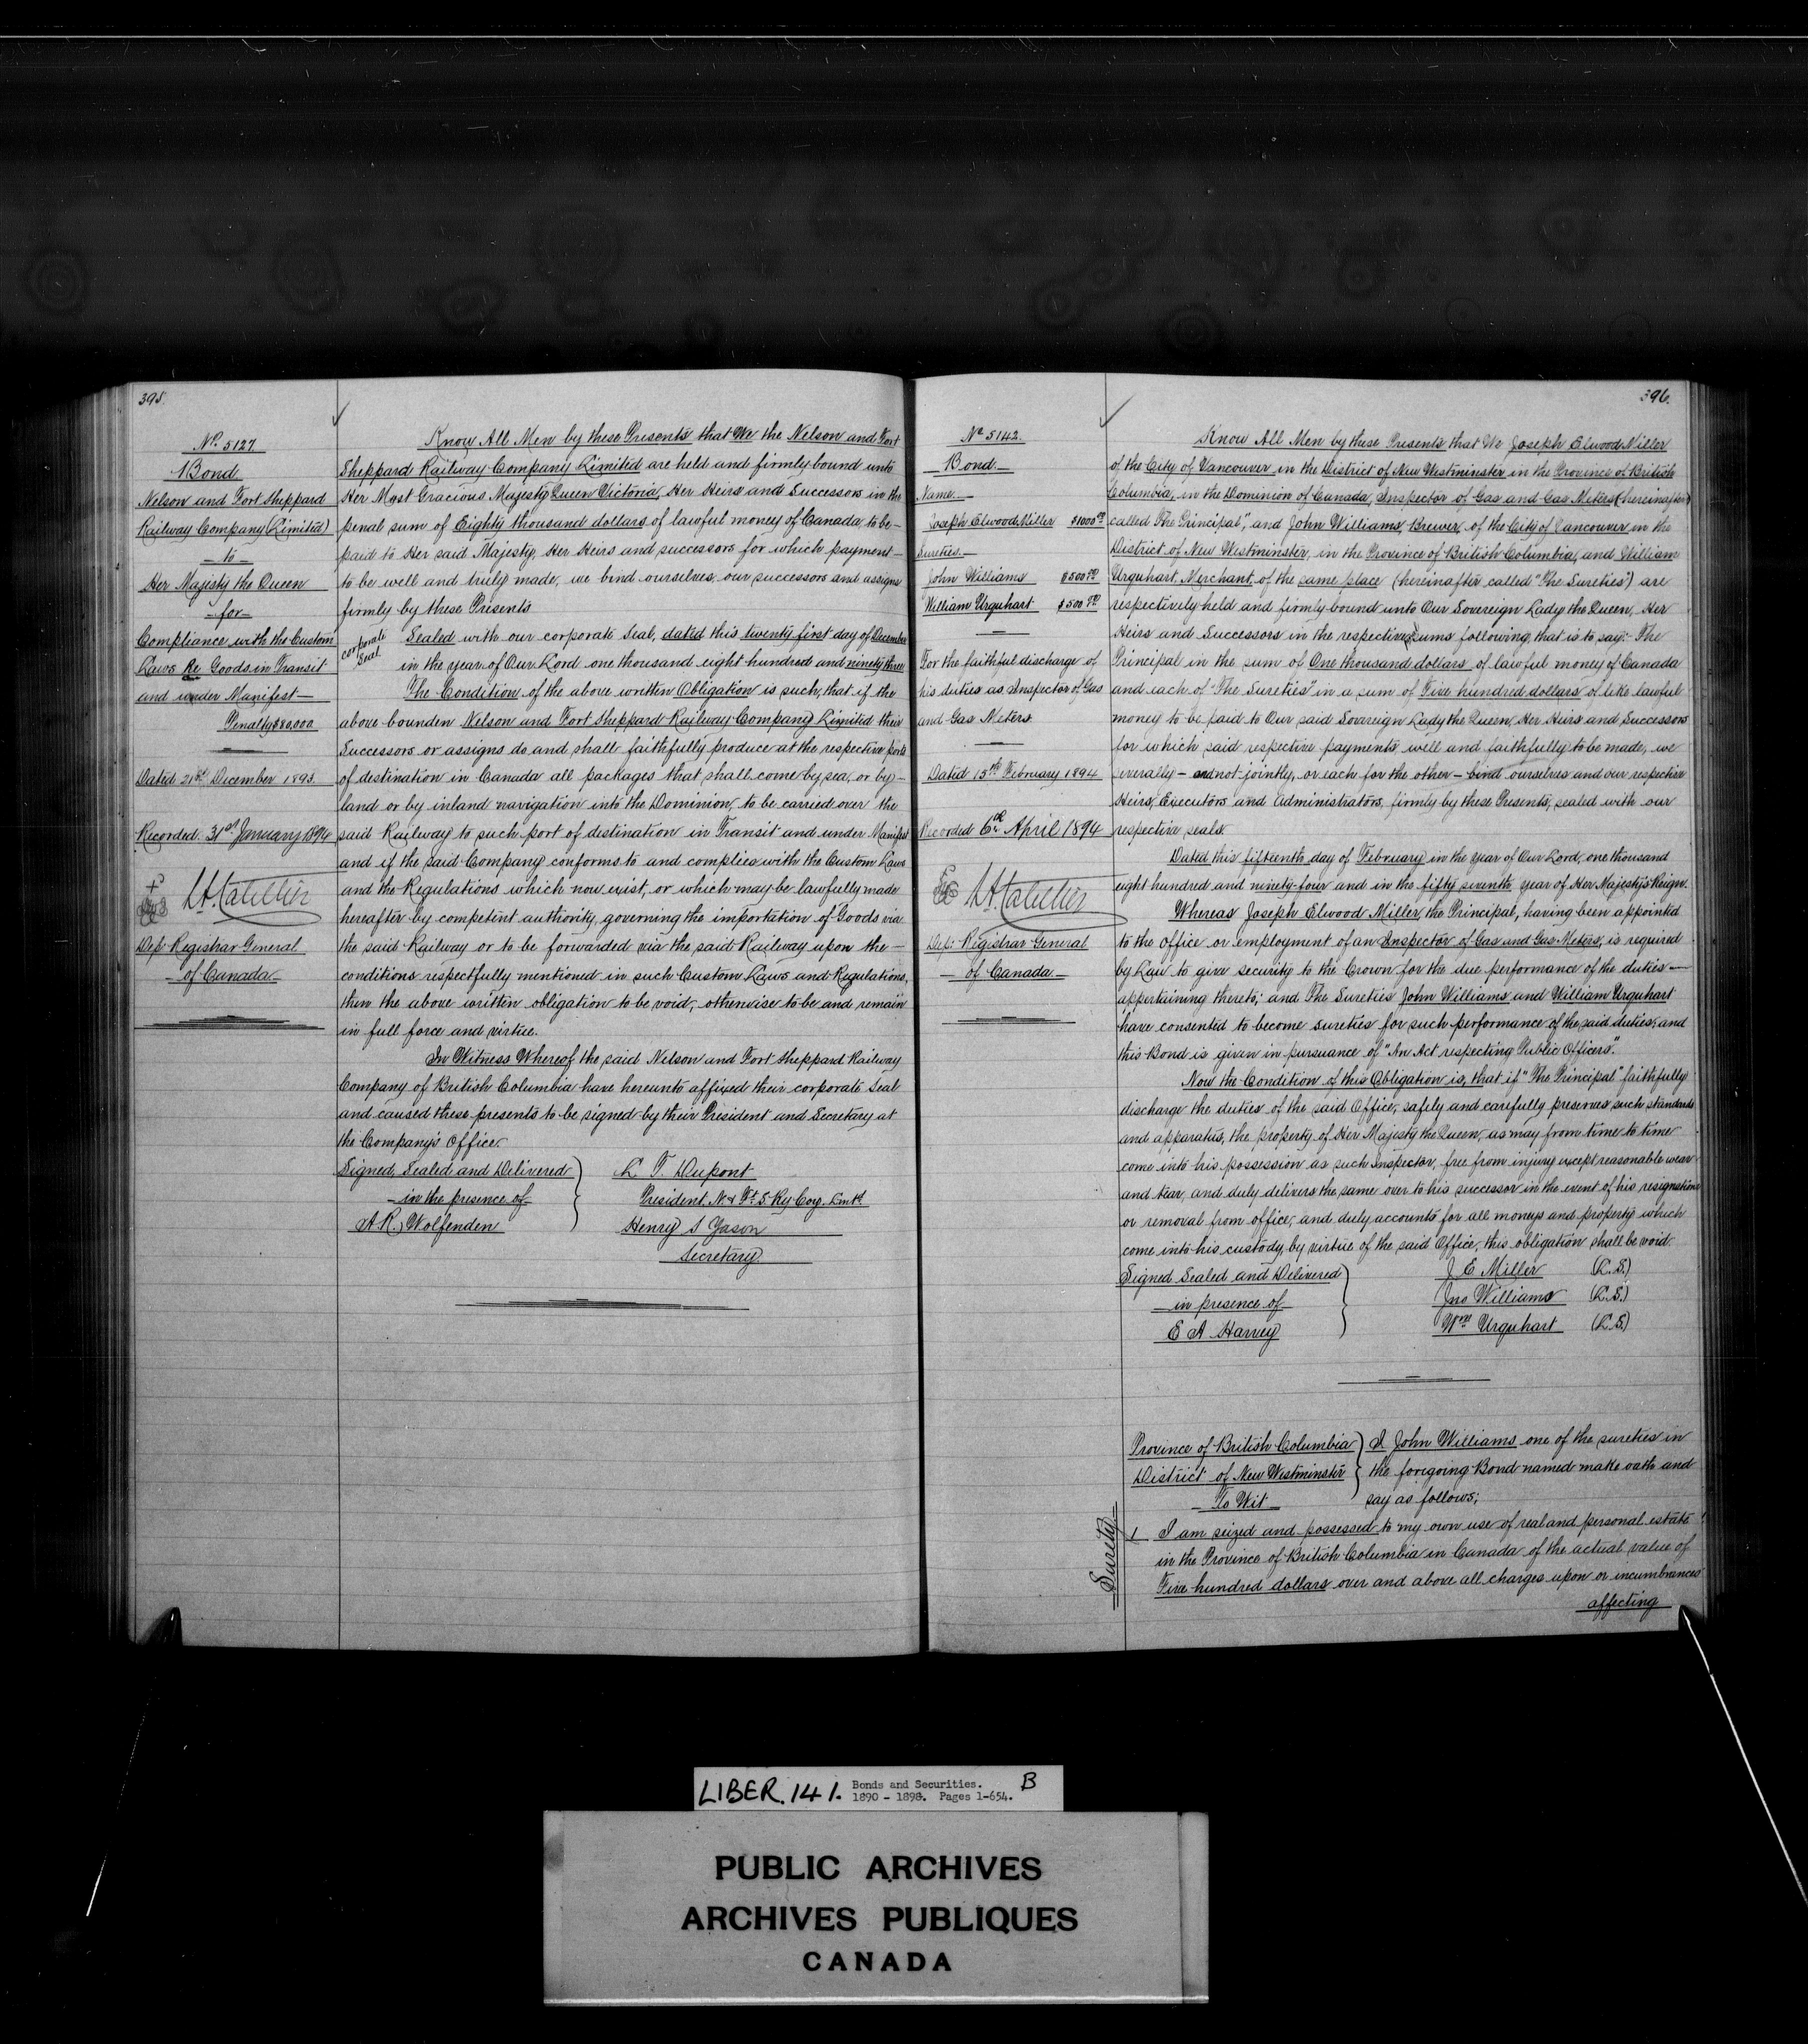 395.
No. 5127.
Bond
Nelson and Fort Sheppard
Railway Company (Limited)
- to -
Her Majesty the Queen
- for -
Compliance with the Custom
Laws Re Goods in Transit
and under Manifest -
Penalty $80,000.
Dated 21st December 1893.
Recorded 31st January 1894
Dep Registrar General
- of Canada -
Know All Men by these Presents that We the Nelson and Fort
Sheppard Railway Company Limited are held and firmly bound unto
Her Most Gracious Majesty Queen Victoria, Her Heirs and Successors in the
penal sum of Eighty thousand dollars of lawful money of Canada, to be -
paid to Her said Majesty, Her Heirs and successors for which payment -
to be well and truly made, we bind ourselves, our successors and assigns
firmly by these Presents
corporate
Seal
Sealed with our corporate Seal, dated this twenty first day of December
in the year of Our Lord one thousand eight hundred and ninety three
The Condition of the above written Obligation is such, that if the
above bounden Nelson and Fort Sheppard Railway Company Limited their
Successors or assigns do and shall faithfully produce at the respective ports
of destination in Canada all packages that shall come by sea, or by -
land or by inland navigation into the Dominion, to be carried over the
said Railway to such port of destination in Transit and under Manifest
and if the said Company conforms to and complies with the Custom Laws
and the Regulations which now exist, or which may be lawfully made
hereafter by competent authority, governing the importation of Goods via
the said Railway or to be forwarded via the said Railway upon the -
conditions respectfully mentioned in such Custom Laws and Regulations,
then the above written obligation to be void, otherwise to be and remain
in full force and virtue.
In Witness Whereof the said Nelson and Fort Sheppard Railway
Company of British Columbia have hereunto affixed their corporate Seal
and caused these presents to be signed by their President and Secretary at
the Company's Office.
Signed, Sealed and Delivered
- in the presence of
A. R. Wolfenden
C T Dupont
President. N & Ft. S Ry Coy. Lmtd.
Henry S Yason
Secretary.
396.
No 5142.
- Bond. -
Name. -
Joseph Elwood Miller $1000.00
Sureties. -
John Williams $500.00
William Urquhart $500.00
For the faithful discharge of
his duties as Inspector of Gas
and Gas Meters
Dated 15th February 1894
Recorded 6th April 1894
Dep: Registrar General
- of Canada -
Know All Men by these Presents that We Joseph Elwood Miller
of the City of Vancouver in the District of New Westminster in the Province of British
Columbia, in the Dominion of Canada, Inspector of Gas and Gas Meters (hereinafter)
called "The Principal", and John Williams Brewer, of the City of Vancouver in the
District of New Westminster, in the Province of British Columbia, and William
Urquhart, Merchant, of the same place (hereinafter called "The Sureties") are
respectively held and firmly bound unto Our Sovereign Lady the Queen, Her
Heirs and Successors in the respective sums following, that is to say: The
Principal in the sum of One thousand dollars of lawful money of Canada
and each of "The Sureties" in a sum of Five hundred dollars of like lawful
money to be paid to Our said Sovereign Lady the Queen, Her Heirs and Successors
for which said respective payments well and faithfully to be made, we
severally - and not jointly, or each for the other - bind ourselves and our respective
Heirs, Executors and Administrators, firmly by these Presents, sealed with our
respective seals.
Dated this fifteenth day of February in the year of Our Lord, one thousand
eight hundred and ninety-four and in the fifty seventh year of Her Majesty's Reign.
Whereas Joseph Elwood Miller, the Principal, having been appointed
to the office or employment of an Inspector of Gas and Gas Meters, is required
by Law to give security to the Crown for the due performance of the duties -
appertaining thereto; and The Sureties John Williams and William Urquhart
have consented to become sureties for such performance of the said duties; and
this Bond is given in pursuance of "An Act respecting Public Officers".
Now the Condition of this Obligation is, that if "The Principal" faithfully
discharge the duties of the said Office, safely and carefully preserves such standards
and apparatus, the property of Her Majesty the Queen, as may from time to time
come into his possession as such Inspector, free from injury except reasonable wear
and tear, and duly delivers the same over to his successor in the event of his resignation
or removal from office, and duly accounts for all moneys and property which
come into his custody by virtue of the said Office, this obligation shall be void.
Signed Sealed and Delivered
- in presence of -
E A Harvey
J E Miller (L.S.)
Jno Williams (L.S.)
Wm Urquhart (L.S.)
Province of British Columbia
District of New Westminster
- To Wit -
I John Williams one of the sureties in
the foregoing Bond named make oath and
say as follows;
Surety
1 I am seized and possessed to my own use of real and personal estate
in the Province of British Columbia in Canada of the actual value of
Five hundred dollars over and above all charges upon or incumbrances
affecting
LIBER. 141. Bonds and Securities. B
1890 - 1898. Pages 1-654.
PUBLIC ARCHIVES
ARCHIVES PUBLIQUES
CANADA